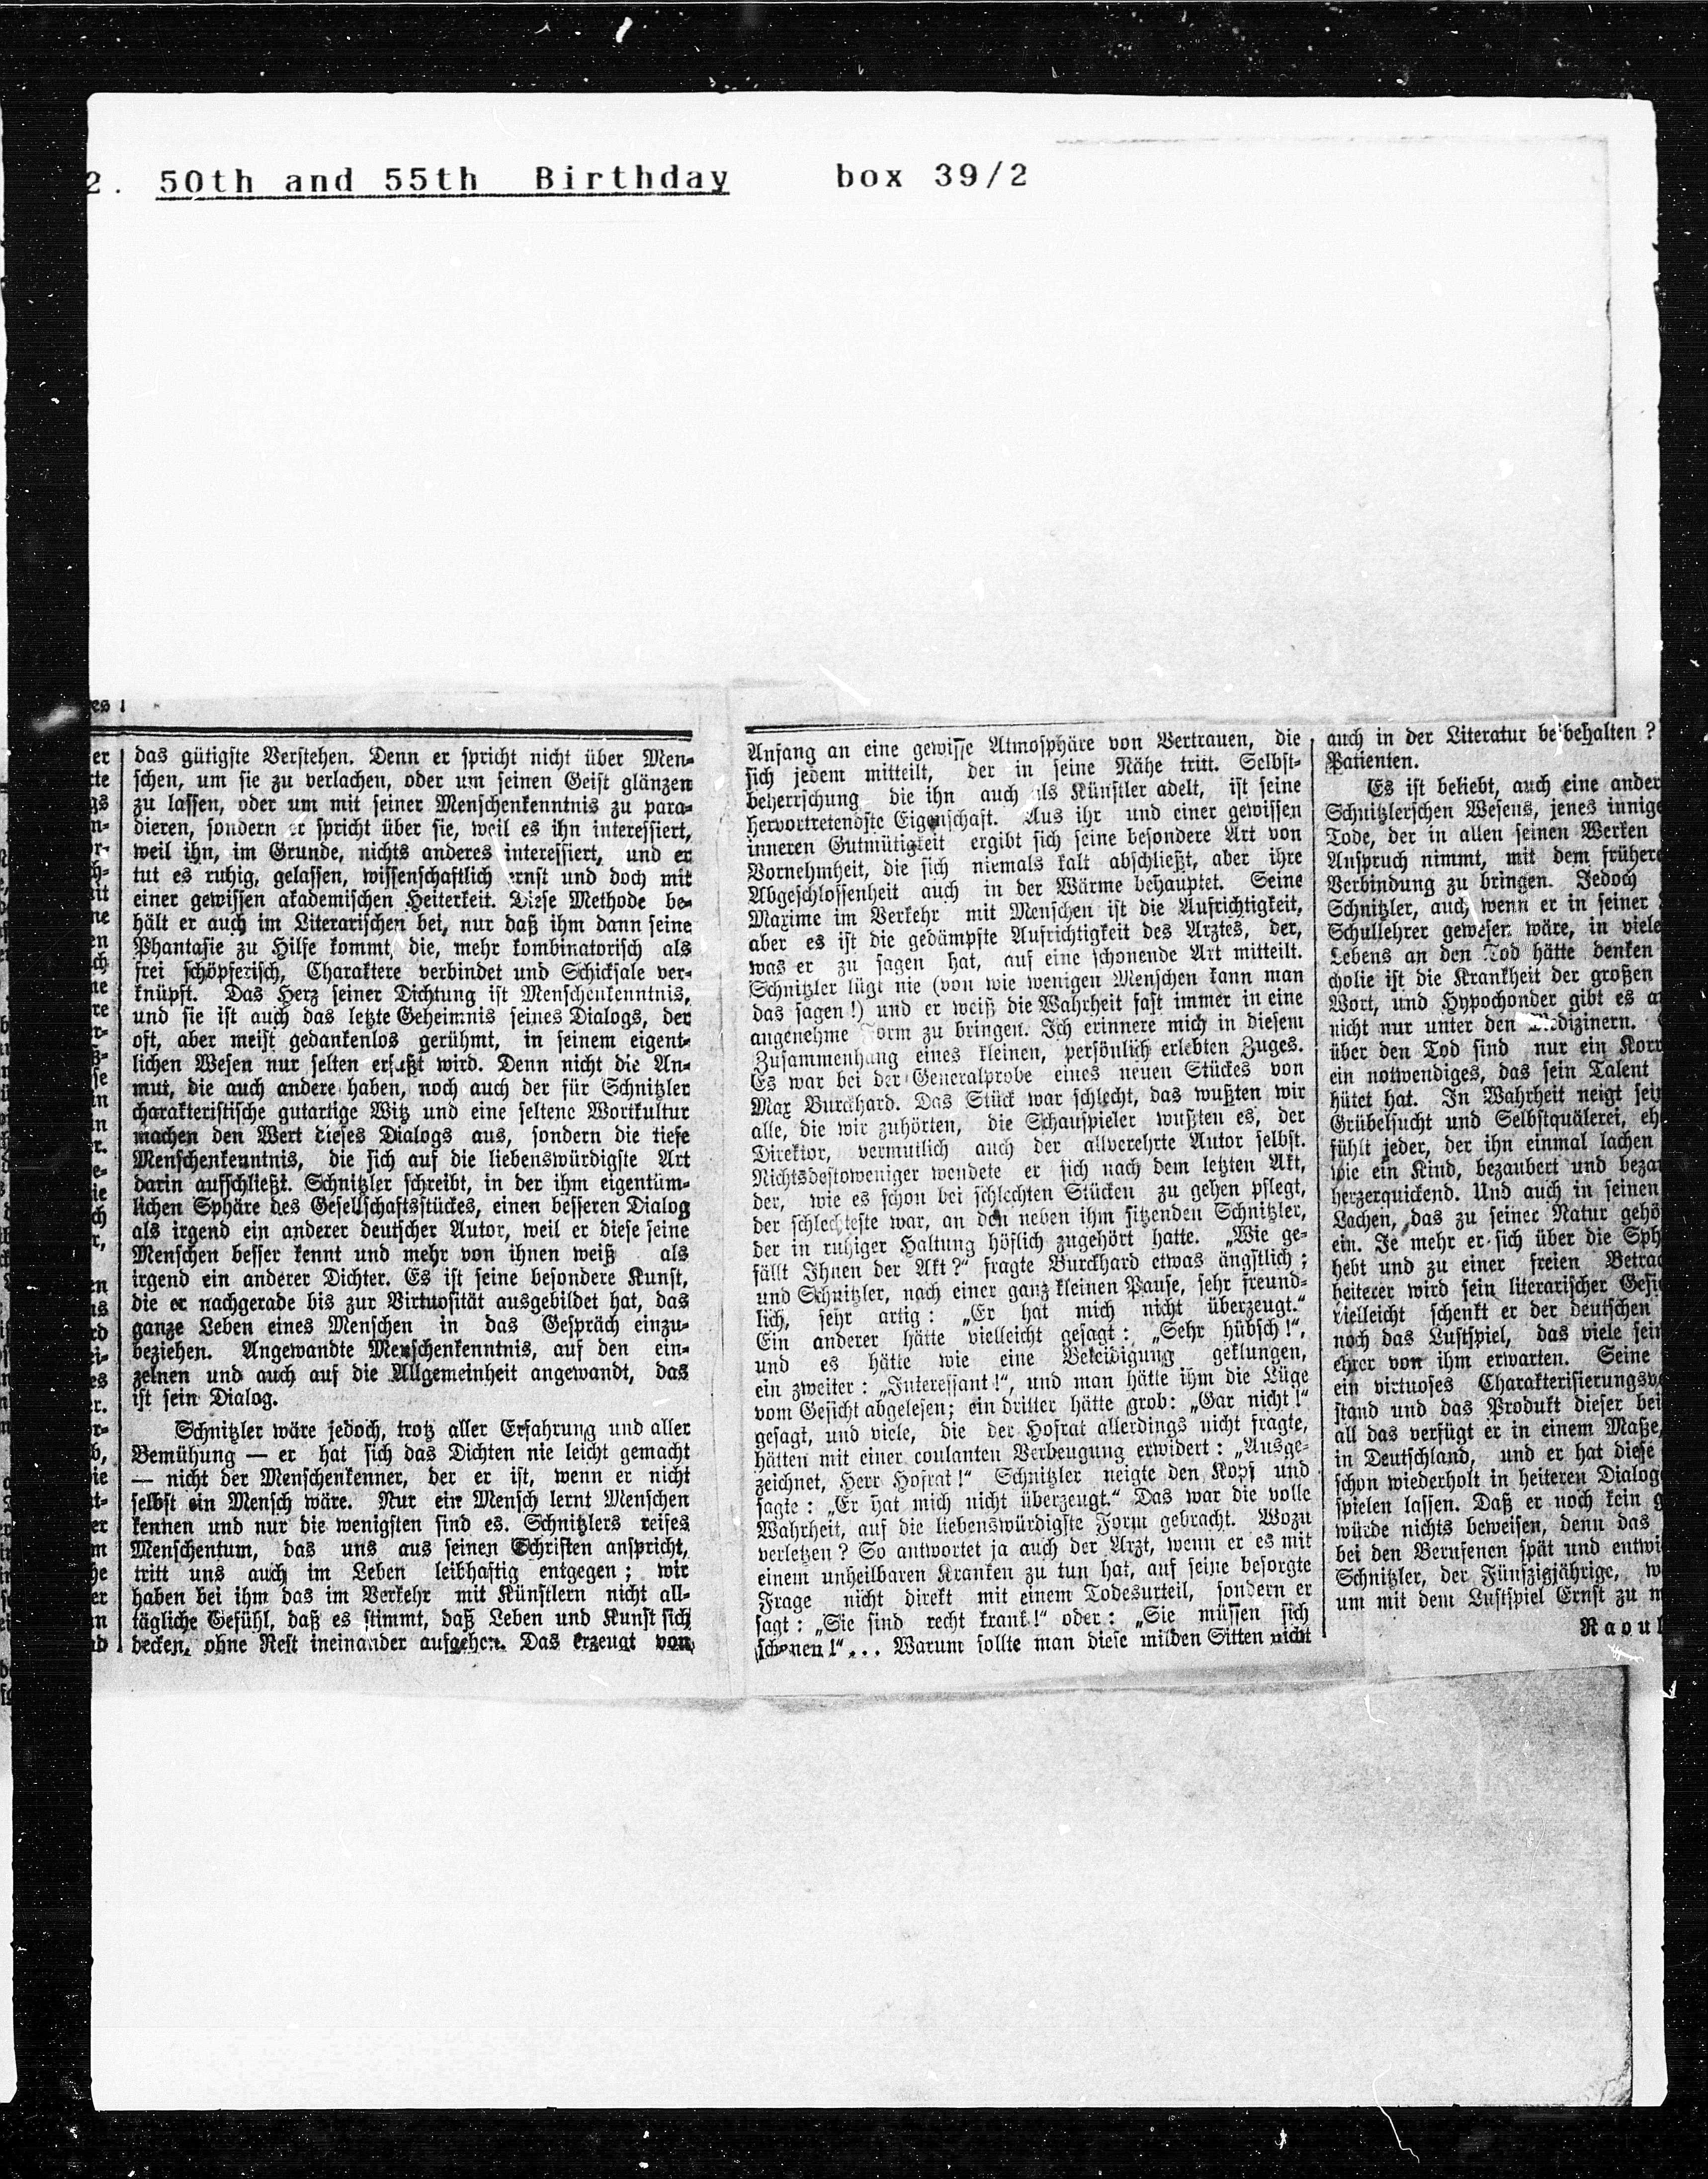 2. 50th and 55th Birthday box 39/2
das gütigste Verstehen. Denn er spricht nicht über Men-
schen, um sie zu verlachen, oder um seinen Geist glänzen
zu lassen, oder um mit seiner Menschenkenntnis zu para-
dieren, sondern er spricht über sie, weil es ihn interessiert,
weil ihn, im Grunde, nichts anderes interessiert, und er
tut es ruhig, gelassen, wissenschaftlich ernst und doch mit
einer gewissen akademischen Heiterkeit. Diese Methode be-
hält er auch im Literarischen bei, nur daß ihm dann seine
Phantasie zu Hilfe kommt, die, mehr kombinatorisch als
frei schöpferisch, Charaktere verbindet und Schicksale ver-
knüpft. Das Herz seiner Dichtung ist Menschenkenntnis,
und sie ist auch das letzte Geheimnis seines Dialogs, der
oft, aber meist gedankenlos gerühmt, in seinem eigent-
lichen Wesen nur selten erfaßt wird. Denn nicht die An-
mut, die auch andere haben, noch auch der für Schnitzler
charakteristische gutartige Witz und eine seltene Wortkultur
machen den Wert dieses Dialogs aus, sondern die tiefe
Menschenkenntnis, die sich auf die liebenswürdigste Art
darin aufschließt. Schnitzler schreibt, in der ihm eigentüm-
lichen Sphäre des Gesellschaftsstückes, einen besseren Dialog
als irgend ein anderer deutscher Autor, weil er diese seine
Menschen besser kennt und mehr von ihnen weiß als
irgend ein anderer Dichter. Es ist seine besondere Kunst,
die er nachgerade bis zur Virtuosität ausgebildet hat, das
ganze Leben eines Menschen in das Gespräch einzu-
beziehen. Angewandte Menschenkenntnis, auf den ein-
zelnen und auch auf die Allgemeinheit angewandt, das
ist sein Dialog.
Schnitzler wäre jedoch, trotz aller Erfahrung und aller
Bemühung — er hat sich das Dichten nie leicht gemacht
— nicht der Menschenkenner, der er ist, wenn er nicht
selbst ein Mensch wäre. Nur ein Mensch lernt Menschen
kennen und nur die wenigsten sind es. Schnitzlers reifes
Menschentum, das uns aus seinen Schriften anspricht,
tritt uns auch im Leben leibhaftig entgegen; wir
haben bei ihm das im Verkehr mit Künstlern nicht all-
tägliche Gefühl, daß es stimmt, daß Leben und Kunst sich
decken, ohne Rest ineinander aufgehen. Das erzeugt von
Anfang an eine gewisse Atmosphäre von Vertrauen, die
sich jedem mitteilt, der in seine Nähe tritt. Selbst-
beherrschung die ihn auch als Künstler adelt, ist seine
hervortretendste Eigenschaft. Aus ihr und einer gewissen
inneren Gutmütigkeit ergibt sich seine besondere Art von
Vornehmheit, die sich niemals kalt abschließt, aber ihre
Abgeschlossenheit auch in der Wärme behauptet. Seine
Maxime im Verkehr mit Menschen ist die Aufrichtigkeit,
aber es ist die gedämpfte Aufrichtigkeit des Arztes, der,
was er zu sagen hat, auf eine schonende Art mitteilt.
Schnitzler lügt nie (von wie wenigen Menschen kann man
das sagen!) und er weiß die Wahrheit fast immer in eine
angenehme Form zu bringen. Ich erinnere mich in diesem
Zusammenhang eines kleinen, persönlich erlebten Zuges.
Es war bei der Generalprobe eines neuen Stückes von
Max Burckhard. Das Stück war schlecht, das wußten wir
alle, die wir zuhörten, die Schauspieler wußten es, der
Direktor, vermutlich auch der allverehrte Autor selbst.
Nichtsdestoweniger wendete er sich nach dem letzten Akt,
der, wie es schon bei schlechten Stücken zu gehen pflegt,
der schlechteste war, an den neben ihm sitzenden Schnitzler,
der in ruhiger Haltung höflich zugehört hatte. „Wie ge-
fällt Ihnen der Akt?“ fragte Burckhard etwas ängstlich;
und Schnitzler, nach einer ganz kleinen Pause, sehr freund-
lich, sehr artig: „Er hat mich nicht überzeugt.“
Ein anderer hätte vielleicht gesagt: „Sehr hübsch!“,
und es hätte wie eine Beleidigung geklungen,
ein zweiter: „Interessant!“, und man hätte ihm die Lüge
vom Gesicht abgelesen; ein dritter hätte grob: „Gar nicht!“
gesagt, und viele, die der Hofrat allerdings nicht fragte,
hätten mit einer coulanten Verbeugung erwidert: „Ausge-
zeichnet, Herr Hofrat!“ Schnitzler neigte den Kopf und
sagte: „Er hat mich nicht überzeugt.“ Das war die volle
Wahrheit, auf die liebenswürdigste Form gebracht. Wozu
verletzen? So antwortet ja auch der Arzt, wenn er es mit
einem unheilbaren Kranken zu tun hat, auf seine besorgte
Frage nicht direkt mit einem Todesurteil, sondern er
sagt: „Sie sind recht krank!“ oder: „Sie müssen sich
schonen!“... Warum sollte man diese milden Sitten nicht
auch in der Literatur beibehalten?
Patienten.
Es ist beliebt, auch eine ander
Schnitzlerschen Wesens, jenes innige
Tode, der in allen seinen Werken
Anspruch nimmt, mit dem frühere
Verbindung zu bringen. Jedoch
Schnitzler, auch wenn er in seiner
Schullehrer gewesen wäre, in viele
Lebens an den Tod hätte denken
cholie ist die Krankheit der großen
Wort, und Hypochonder gibt es a
nicht nur unter den Medizinern.
über den Tod sind nur ein Korr
ein notwendiges, das sein Talent
hütet hat. In Wahrheit neigt sein
Grübelsucht und Selbstquälerei, eh
fühlt jeder, der ihn einmal lachen
wie ein Kind, bezaubert und bezau
herzerquickend. Und auch in seinen
Lachen, das zu seiner Natur gehö
ein. Je mehr er sich über die Sph
hebt und zu einer freien Betrac
heiterer wird sein literarischer Gesi
vielleicht schenkt er der deutschen
noch das Lustspiel, das viele sein
ehrer von ihm erwarten. Seine
ein virtuoses Charakterisierungsv
stand und das Produkt dieser bei
all das verfügt er in einem Maße,
in Deutschland, und er hat diese
schon wiederholt in heiteren Dialog
spielen lassen. Daß er noch kein g
würde nichts beweisen, denn das
bei den Berufenen spät und entwi
Schnitzler, der Fünfzigjährige, w
um mit dem Lustspiel Ernst zu m
Raoul